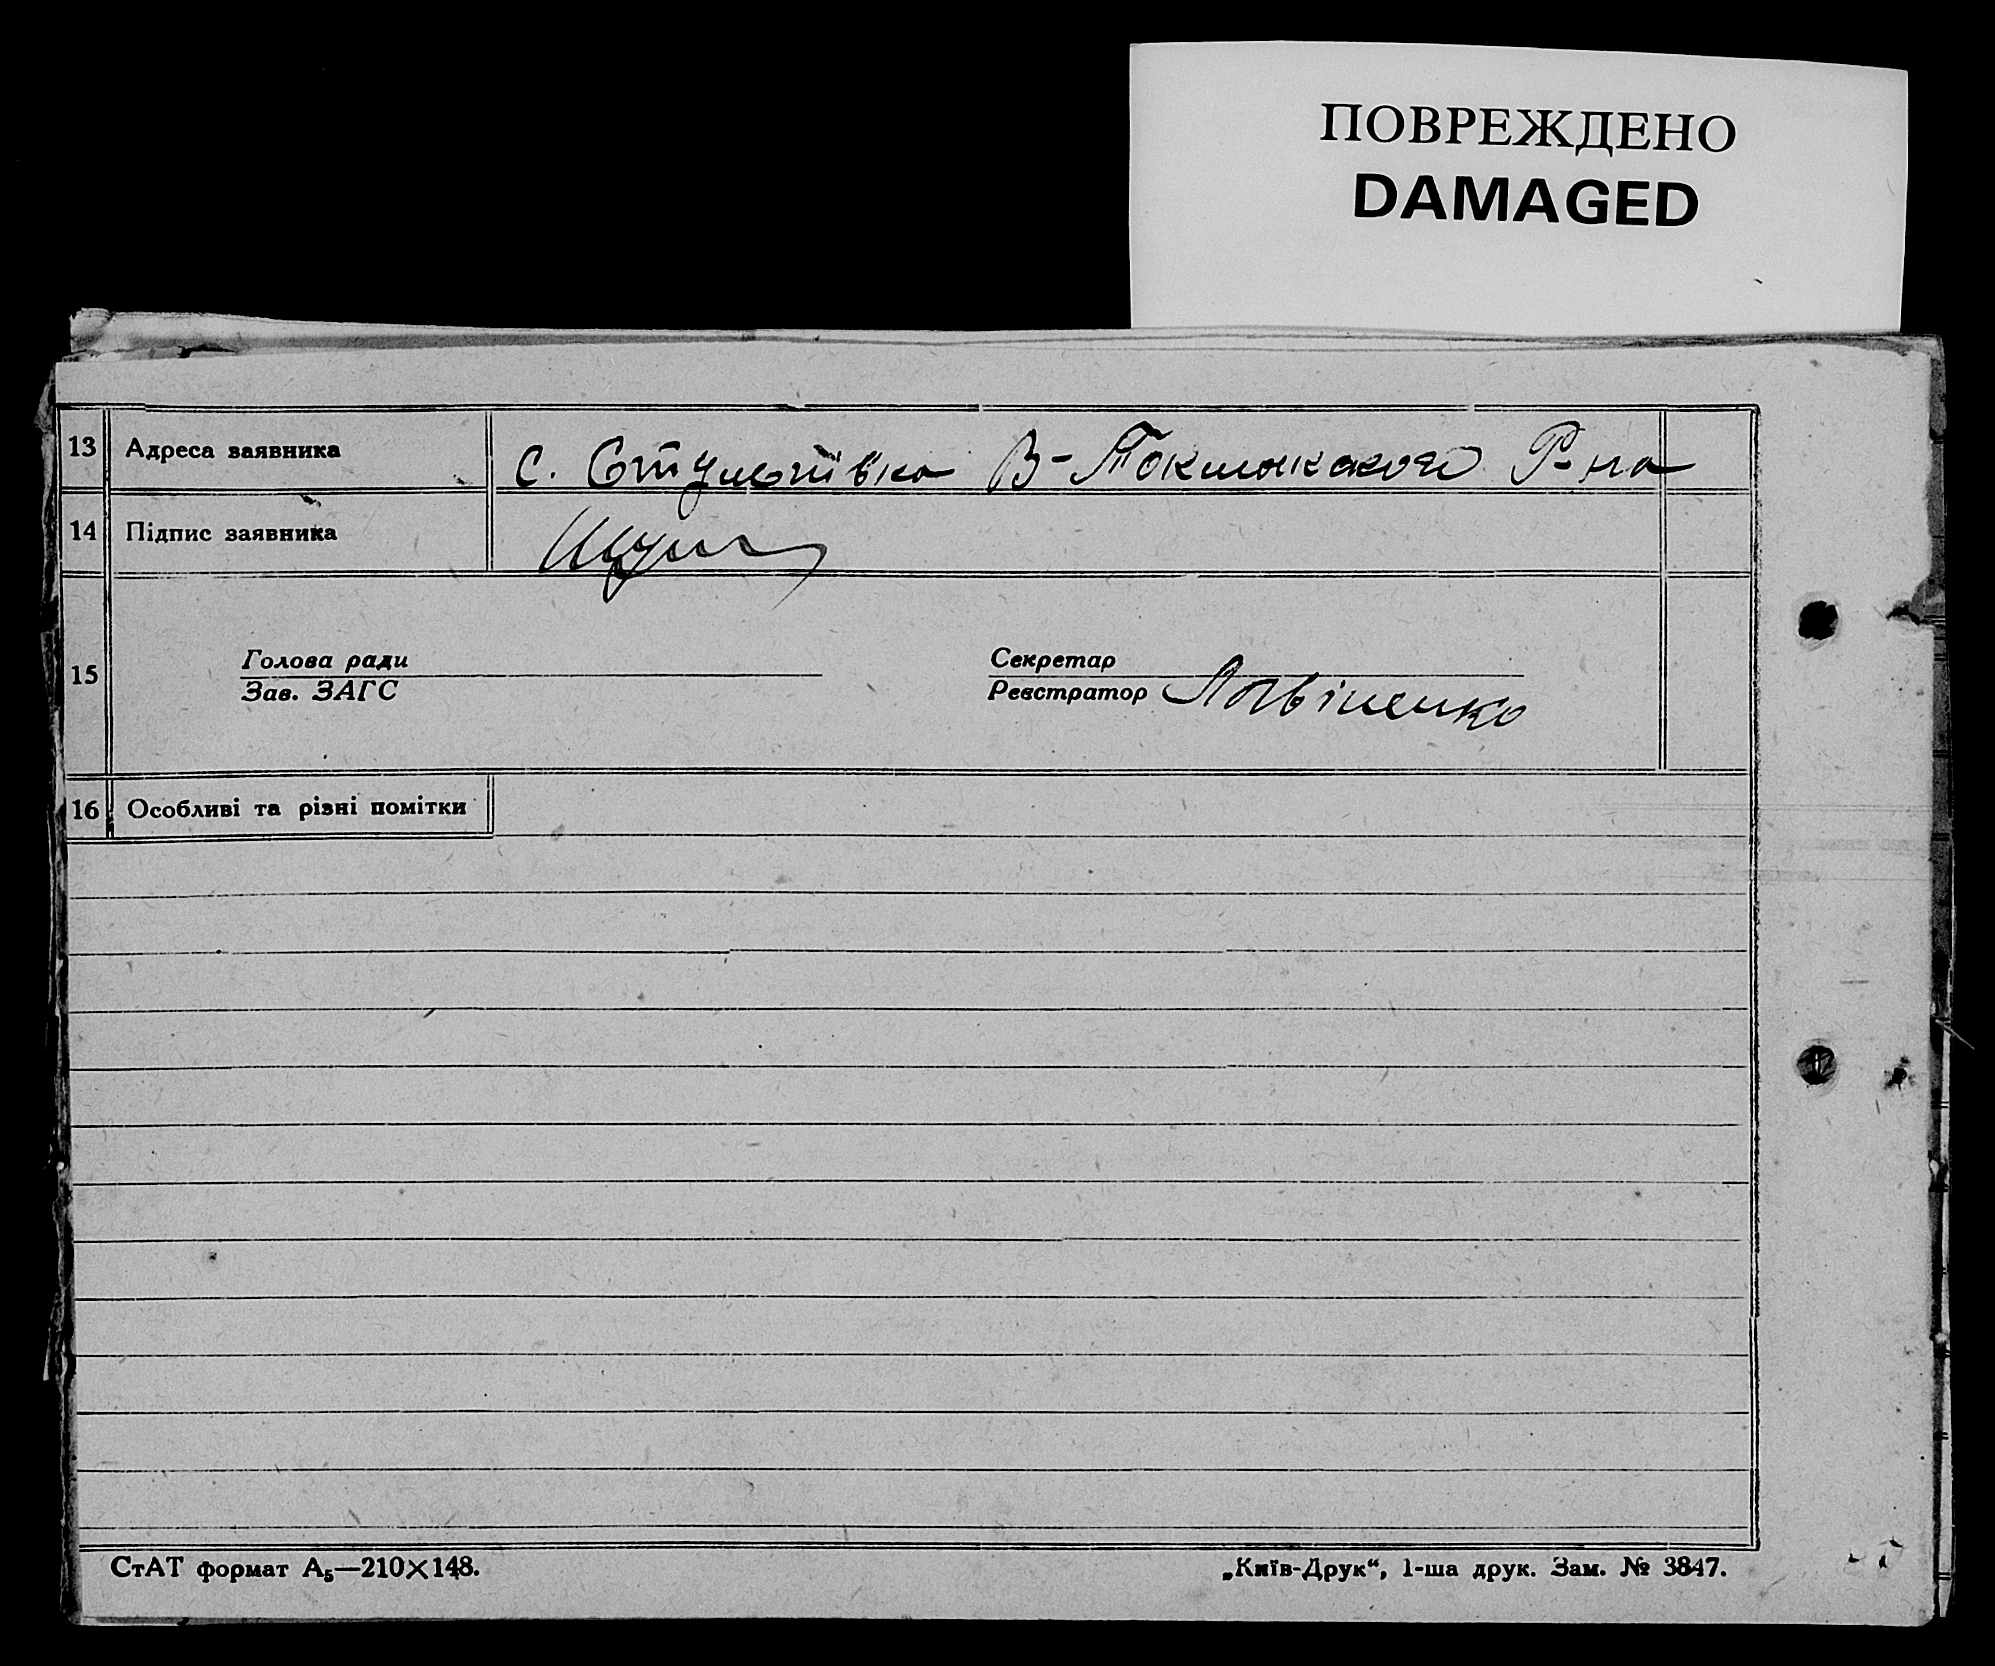 ПОВРЕЖДЕНО
DAMAGED
13 Адреса заявника с. Остриківка В-Токмакского Р-на
14 Підпис заявника
Голова ради Секретар
15
Зав. ЗАГС Реєстратор Літвіненко
16 Особливі та різні помітки
СтАТ формат А₅—210×148. „Київ-Друк“, 1-ша друк. Зам. № 3847.